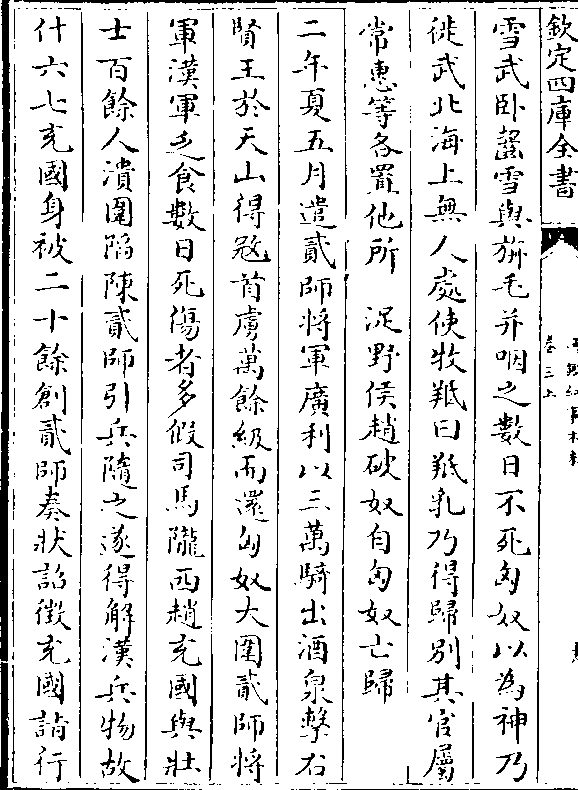 欽定四庫全書
卷三上
雪武卧齧雪與旃毛并咽之數日不死匈奴以為神乃
徙武北海上無人處使牧羝曰羝乳乃得歸别其官屬
常惠等各置他所　浞野侯趙破奴自匈奴亡歸
二年夏五月遣貳師將軍廣利以三萬騎出酒泉擊右
賢王於天山得冦首虜萬餘級而還匈奴大圍貳師將
軍漢軍乏食數日死傷者多假司馬隴西趙充國與壯
士百餘人潰圍陷陳貳師引兵隨之遂得解漢兵物故
什六七充國身被二十餘創貳師奏狀詔徵充國詣行